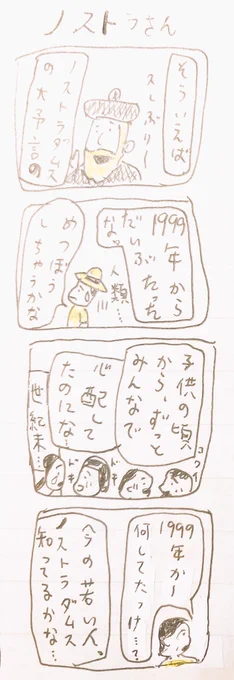 ノストラさん
そういえば
久しぶりー
ノストラダムス
の大予言の
1999年から
だいぶたった
なっ
人類…
めつぼう
しちゃうかな
子供の頃
から、ずっと
みんなで
心配して
たのにな…
コワイ
ドキ
ドキ
世紀末…
1999
年かー
何してたっけ…?
今の若い人、
ノストラダムス
知ってるかな…